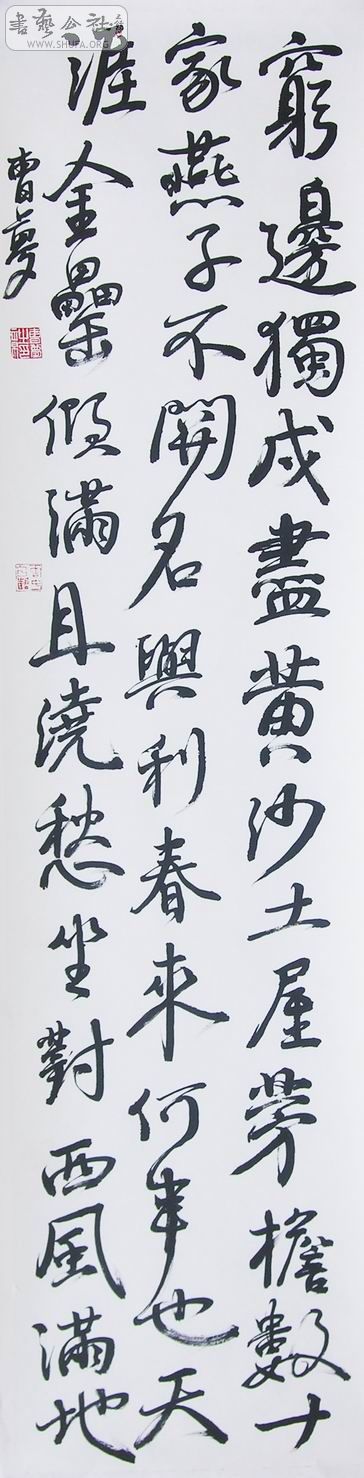 窮邊獨戍盡黃沙土屋勞檐數十
家燕子不開名與利春來何事也天
涯金罍傾滿且澆愁坐對西風滿地
曹夢
書藝公社
WWW.SHUFA.ORG